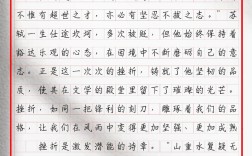 不惟有超世之才，亦必有坚忍不拔之志。”苏
轼一生仕途坎坷，多次被贬，但他始终保持着
豁达乐观的心态，在困境中不断磨砺自己的意
志。正是这一次次的挫折，铸就了他坚韧的品
质，使其在文学的殿堂里留下了璀璨的光芒。
挫折，如同一把锋利的刻刀，雕琢着我们的品
格，让我们在风雨中变得更加坚强、更加成熟
挫折是激发潜能的诗章。“山重水复疑无